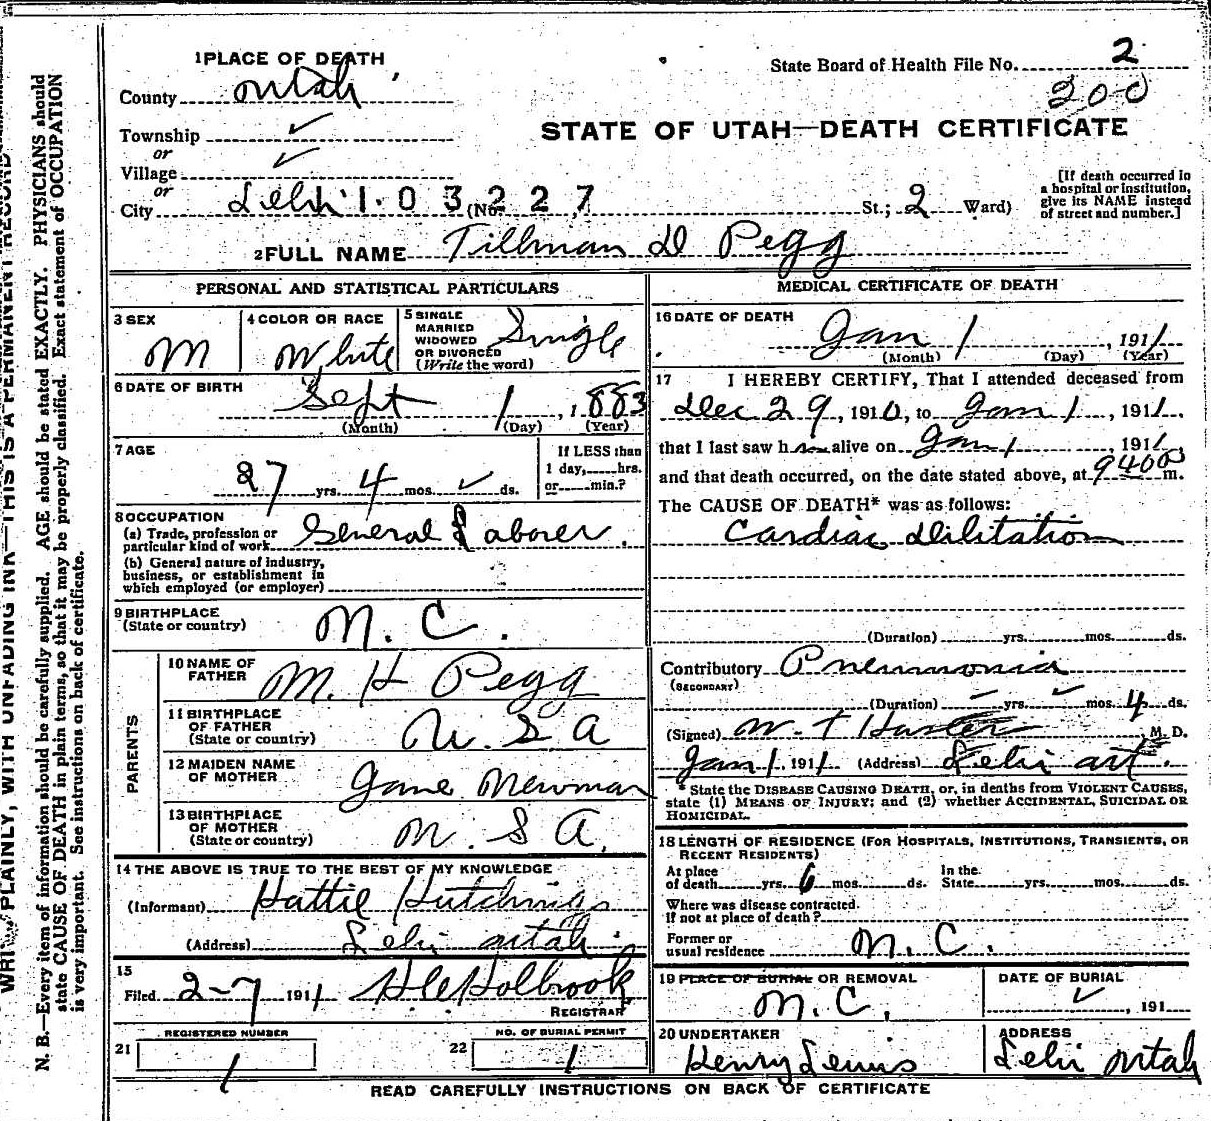 1 PLACE OF DEATH
State Board of Health File No. 2
County Utah
200
Township ✓
STATE OF UTAH—DEATH CERTIFICATE
or
Village ✓
or
City Lehi 1 0 3 2 2 7 (No. St.; 2 Ward)
[If death occurred in
a hospital or institution,
give its NAME instead
of street and number.]
2 FULL NAME Tillman D Pegg
PERSONAL AND STATISTICAL PARTICULARS
3 SEX
M
4 COLOR OR RACE
White
5 SINGLE
MARRIED
WIDOWED
OR DIVORCED
(Write the word)
Single
6 DATE OF BIRTH
Sept 1, 1883
(Month) (Day) (Year)
7 AGE
27 yrs. 4 mos. ✓ ds.
If LESS than
1 day, hrs.
or min.?
8 OCCUPATION
(a) Trade, profession or
particular kind of work General Laborer.
(b) General nature of industry,
business, or establishment in
which employed (or employer)
9 BIRTHPLACE
(State or country)
N. C.
PARENTS
10 NAME OF
FATHER
M. H Pegg
11 BIRTHPLACE
OF FATHER
(State or country)
U. S A
12 MAIDEN NAME
OF MOTHER
Jane Newman
13 BIRTHPLACE
OF MOTHER
(State or country)
U. S A.
14 THE ABOVE IS TRUE TO THE BEST OF MY KNOWLEDGE
(Informant) Hattie Hutchings
(Address) Lehi Utah
15
Filed 2-7 1911 Holbrook
REGISTRAR
REGISTERED NUMBER
21 1
NO. OF BURIAL PERMIT
22 1
MEDICAL CERTIFICATE OF DEATH
16 DATE OF DEATH
Jan 1, 1911
(Month) (Day) (Year)
17 I HEREBY CERTIFY, That I attended deceased from
Dec 29, 1910, to Jan 1, 1911,
that I last saw him alive on Jan 1 1911
and that death occurred, on the date stated above, at 940 m.
The CAUSE OF DEATH* was as follows:
Cardiac Dilitation
(Duration) yrs. mos. ds.
Contributory Pneumonia
(SECONDARY)
(Duration) – yrs. ✓ mos. 4 ds.
(Signed) W. T M. D.
Jan 1, 1911 (Address) Lehi Ut.
* State the DISEASE CAUSING DEATH, or, in deaths from VIOLENT CAUSES,
state (1) MEANS OF INJURY; and (2) whether ACCIDENTAL, SUICIDAL OR
HOMICIDAL.
18 LENGTH OF RESIDENCE (FOR HOSPITALS, INSTITUTIONS, TRANSIENTS, OR
RECENT RESIDENTS)
At place
of death yrs. 6 mos. ds.
In the
State yrs. mos. ds.
Where was disease contracted.
If not at place of death?
Former or
usual residence N. C.
19 PLACE OF BURIAL OR REMOVAL
N. C.
DATE OF BURIAL
✓, 191
20 UNDERTAKER
Henry Lewis
ADDRESS
Lehi Utah
READ CAREFULLY INSTRUCTIONS ON BACK OF CERTIFICATE
PLAINLY, WITH UNFADING INK—THIS IS A PERMANENT RECORD
N. B.—Every item of information should be carefully supplied. AGE should be stated EXACTLY. PHYSICIANS should
state CAUSE OF DEATH in plain terms, so that it may be properly classified. Exact statement of OCCUPATION
is very important. See instructions on back of certificate.